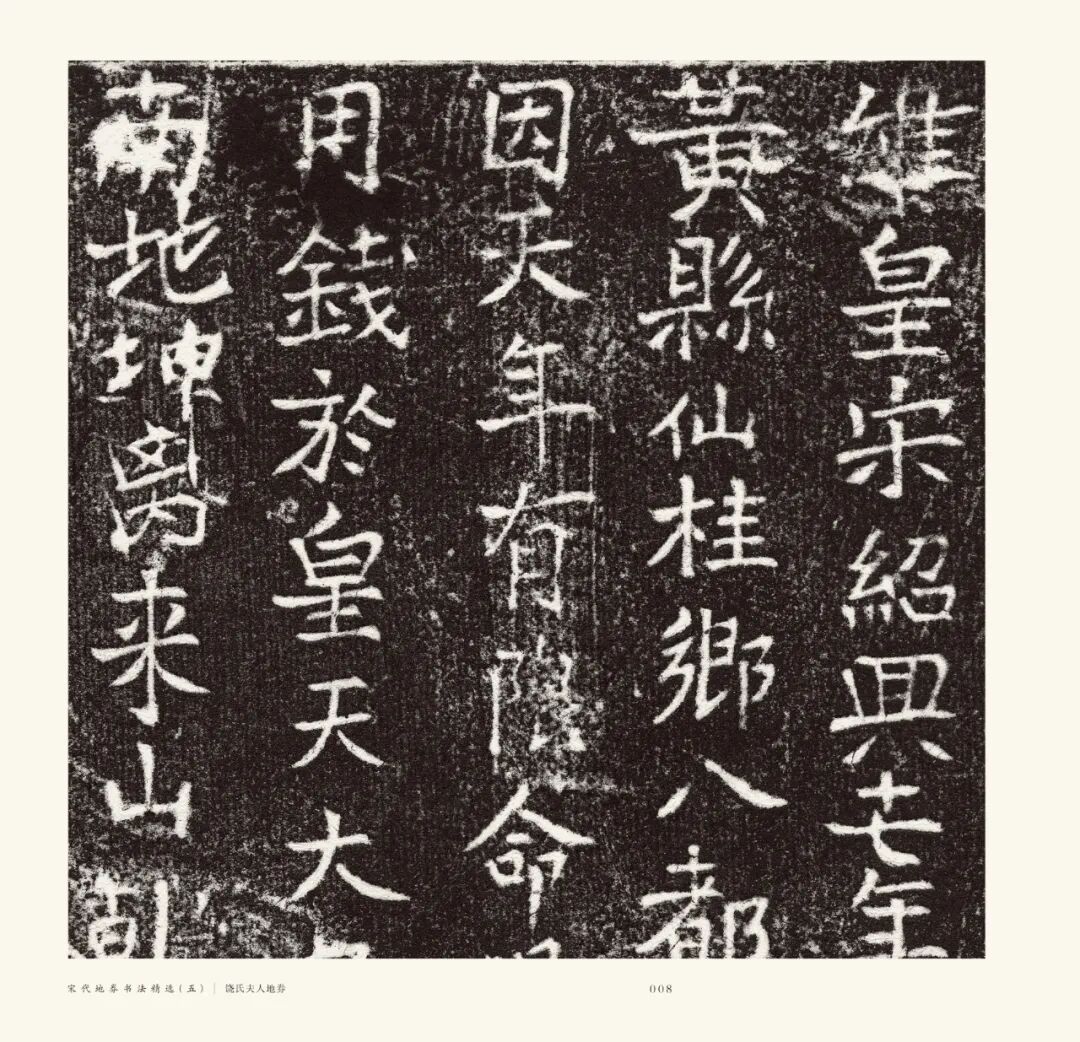 維皇宋紹興十七年
黃縣仙桂鄉八都
因天年有限命
用錢於皇天大
南地坤离来山
宋代地券书法精选（五）｜饶氏夫人地券
008